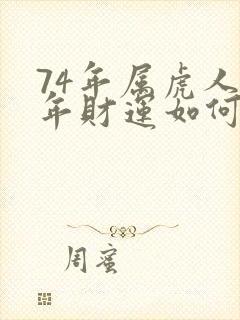 74年属虎人
年财运如何
周蜜